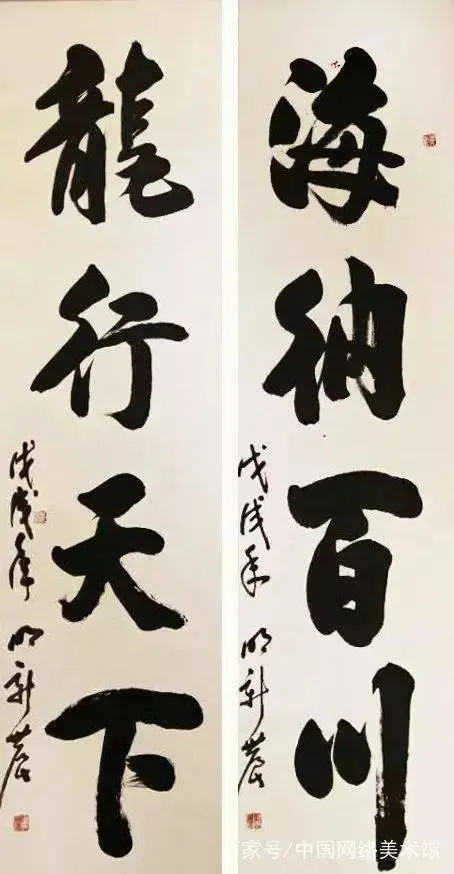 海納百川
戊戌年 明新
龍行天下
戊戌年 明新
家号/中国网络美术馆